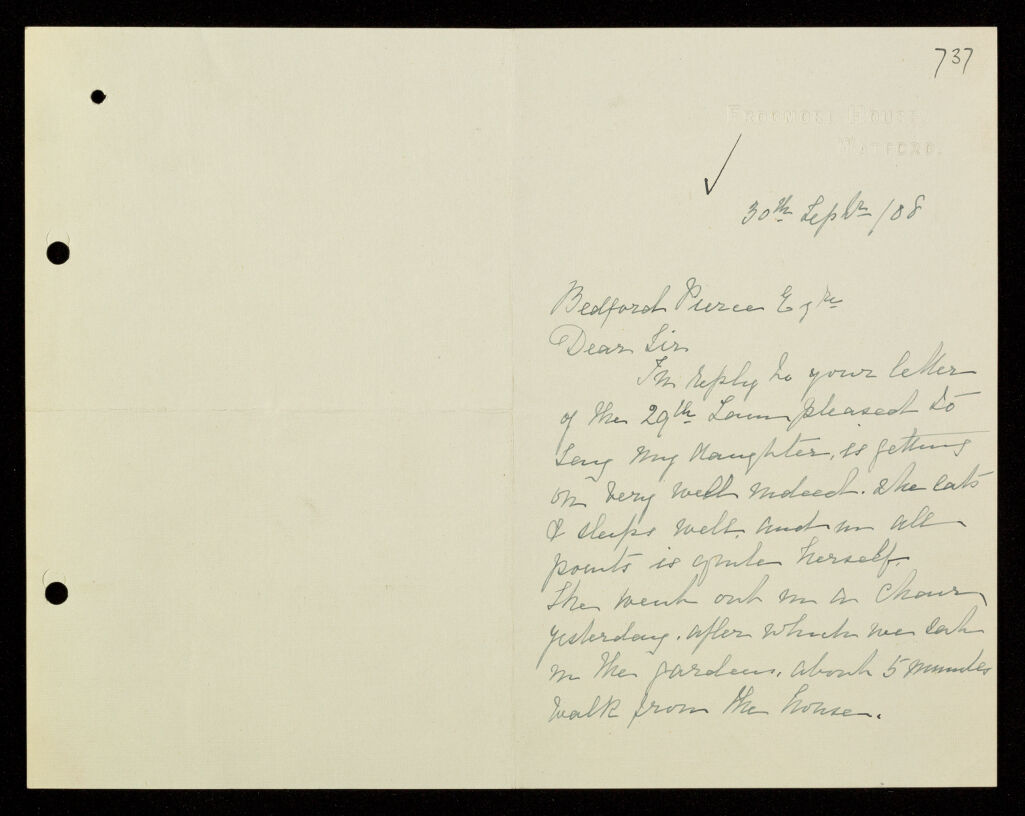 737
FROGMORE HOUSE,
WATFORD.
30th Sepbr /08
Bedford Pierce Eqre
Dear Sir
In reply to your letter
of the 29th I am pleased to
say my daughter, is getting
on very well indeed. She eats
& sleeps well, and in all
points is quite herself.
She went out in a chair
yesterday. after which we sat
in the gardens, about 5 minutes
walk from the house.